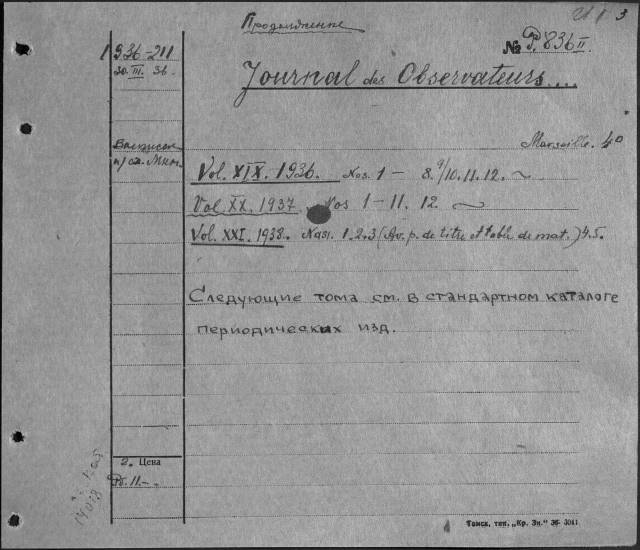 Продолжение
1936-211
20.III.36.
№ P. 836 II
Journal des Observateurs...
Marseille. 4º
Vol. XIX. 1936. Nos. 1 - 8. 9/10. 11. 12. ~
Vol. XX. 1937. Nos 1 - 11. 12. ~
Vol. XXI. 1938. 1. 2. 3 (Av. p. de titre et table de mat.) 4. 5.
Следующие тома см. в стандартном каталоге
периодических изд.
Цена
Рб. 11.-
Томск, тип. „Кр. Зн." 36- 5041